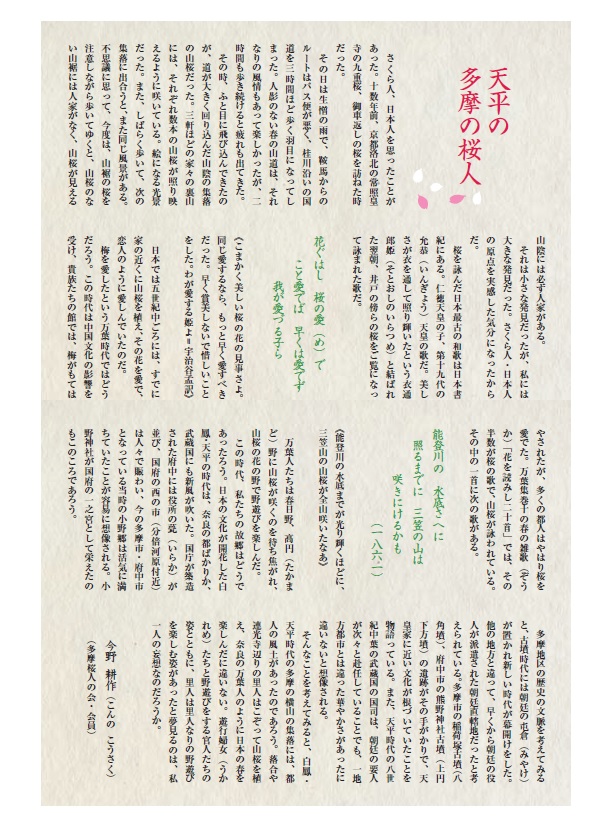 天平の
多摩の桜人
さくら人、日本人を思ったことが
あった。十数年前、京都洛北の常照皇
寺の九重桜、御車返しの桜を訪ねた時
だった。
その日は生憎の雨で、鞍馬からの
ルートはバス便が悪く、桂川沿いの国
道を三時間ほど歩く羽目になってし
まった。人影のない春の山道は、それ
なりの風情もあって楽しかったが、二
時間も歩き続けると疲れも出てきた。
その時、ふと目に飛び込んできたの
が、道が大きく回り込んだ山陰の集落
の山桜だった。三軒ほどの家々の裏山
には、それぞれ数本の山桜が照り映
えるように咲いている。絵になる光景
だった。また、しばらく歩いて、次の
集落に出合うと、また同じ風景がある。
不思議に思って、今度は、山裾の桜を
注意しながら歩いてゆくと、山桜のな
い山裾には人家がなく、山桜が見える
山陰には必ず人家がある。
それは小さな発見だったが、私には
大きな発見だった。さくら人・日本人
の原点を実感した気分になったから
だ。
桜を詠んだ日本最古の和歌は日本書
紀にある。仁徳天皇の子、第十九代の
允恭（いんぎょう）天皇の歌だ。美し
さが衣を通して照り輝いたという衣通
郎姫（そとおしのいらつめ）と結ばれ
た翌朝、井戸の傍らの桜をご覧になっ
て詠まれた歌だ。
花ぐはし 桜の愛（め）で
こと愛でば 早くは愛でず
我が愛づる子ら
《こまかく美しい桜の花の見事さよ。
同じ愛するなら、もっと早く愛すべき
だった。早く賞美しないで惜しいこと
をした。わが愛する姫よ＝宇治谷孟訳》
日本では五世紀中ごろには、すでに
家の近くに山桜を植え、その花を愛で、
恋人のように愛しんでいたのだ。
梅を愛したという万葉時代ではどう
だろう。この時代は中国文化の影響を
受け、貴族たちの館では、梅がもては
やされたが、多くの都人はやはり桜を
愛でた。万葉集巻十の春の雑歌（ぞう
か）「花を詠みし二十首」では、その
半数が桜の歌で、山桜が詠われている。
その中の一首に次の歌がある。
能登川の 水底さへに
照るまでに 三笠の山は
咲きにけるかも
（一八六一）
《能登川の水底までが光り輝くほどに、
三笠山の山桜が全山咲いたなあ》
万葉人たちは春日野、高円（たかま
ど）野に山桜が咲くのを待ち焦がれ、
山桜の花の野で野遊びを楽しんだ。
この時代、私たちの故郷はどうで
あったろう。日本の文化が開花した白
鳳・天平の時代は、奈良の都ばかりか、
武蔵国にも新風が吹いた。国庁が築造
された府中には役所の甍（いらか）が
並び、国府の西の市（分倍河原付近）
は人々で賑わい、今の多摩市・府中市
となっている当時の小野郷は活気に満
ちていたことが容易に想像される。小
野神社が国府の一之宮として栄えたの
もこのころであろう。
多摩地区の歴史の文脈を考えてみる
と、古墳時代には朝廷の屯倉（みやけ）
が置かれ新しい時代が幕開けをした。
他の地方と違って、早くから朝廷の役
人が派遣された朝廷直轄地だったと考
えられている。多摩市の稲荷塚古墳（八
角墳）、府中市の熊野神社古墳（上円
下方墳）の遺跡がその手がかりで、天
皇家に近い文化が根づいていたことを
物語っている。また、天平時代の八世
紀中葉の武蔵国の国司は、朝廷の要人
が次々と赴任していることでも、一地
方都市とは違った華やかさがあったに
違いないと想像される。
そんなことを考えてみると、白鳳・
天平時代の多摩の横山の集落には、都
人の風土があったのであろう。落合や
連光寺辺りの里人はこぞって山桜を植
え、奈良の万葉人のように日本の春を
楽しんだに違いない。遊行婦女（うか
れめ）たちと野遊びをする官人たちの
姿とともに、里人は里人なりの野遊び
を楽しむ姿があったと夢見るのは、私
一人の妄想なのだろうか。
今野 耕作（こんの こうさく）
（多摩桜人の会・会員）